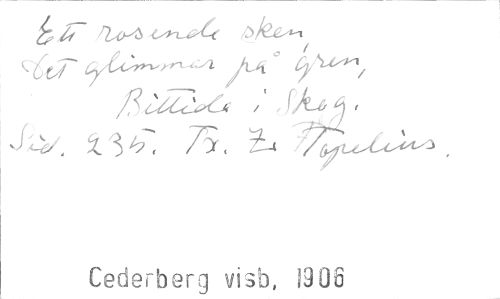 Ett rosende sken
Det glimmar på gren,
Bittida i Skog.
Sid. 235. Tx. Z. Topelius.
Cederberg visb, 1906